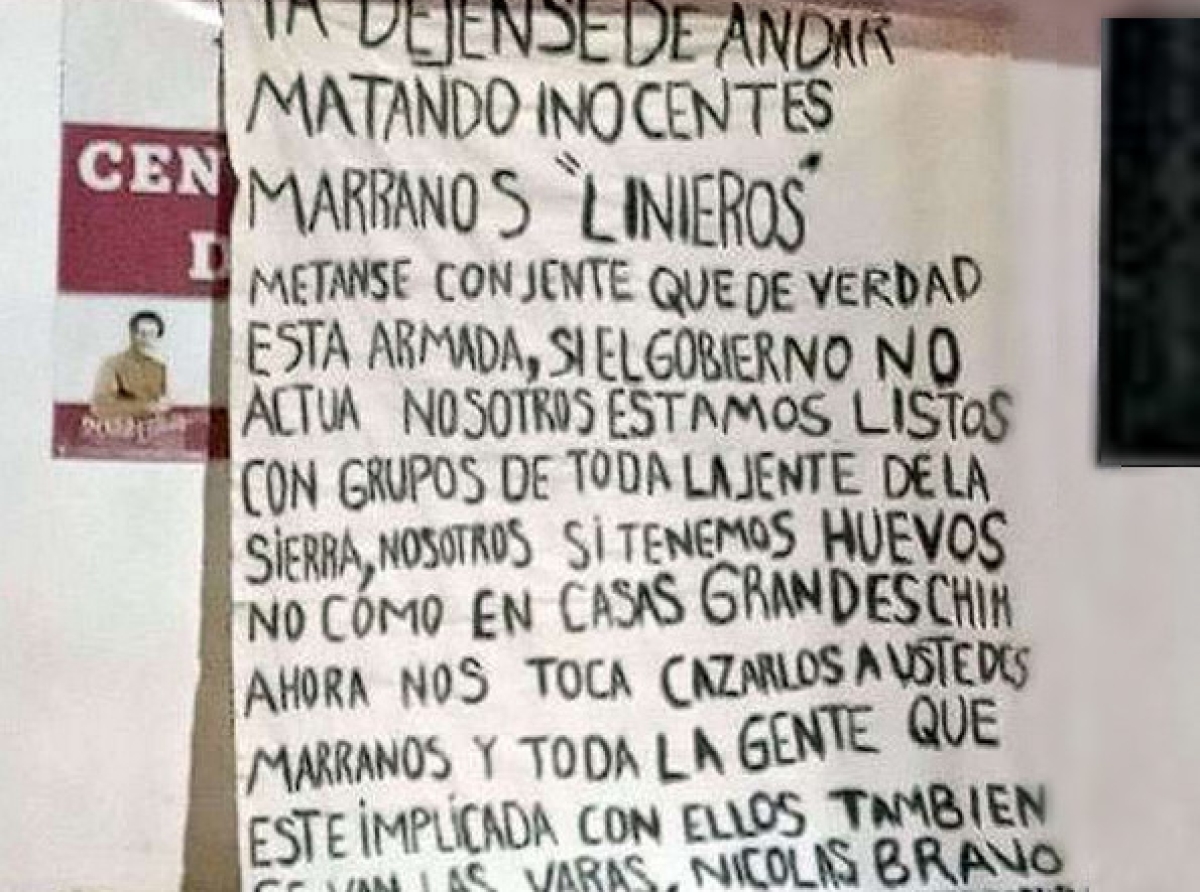 YA DEJENSE DE ANDAR
MATANDO INOCENTES
MARRANOS "LINIEROS"
METANSE CON JENTE QUE DE VERDAD
ESTA ARMADA, SI EL GOBIERNO NO
ACTUA NOSOTROS ESTAMOS LISTOS
CON GRUPOS DE TODA LA JENTE DE LA
SIERRA, NOSOTROS SI TENEMOS HUEVOS
NO COMO EN CASAS GRANDES CHIH
AHORA NOS TOCA CAZARLOS A USTEDES
MARRANOS Y TODA LA GENTE QUE
ESTE IMPLICADA CON ELLOS TAMBIEN
SE VAN LAS VARAS, NICOLAS BRAVO
CEN
D